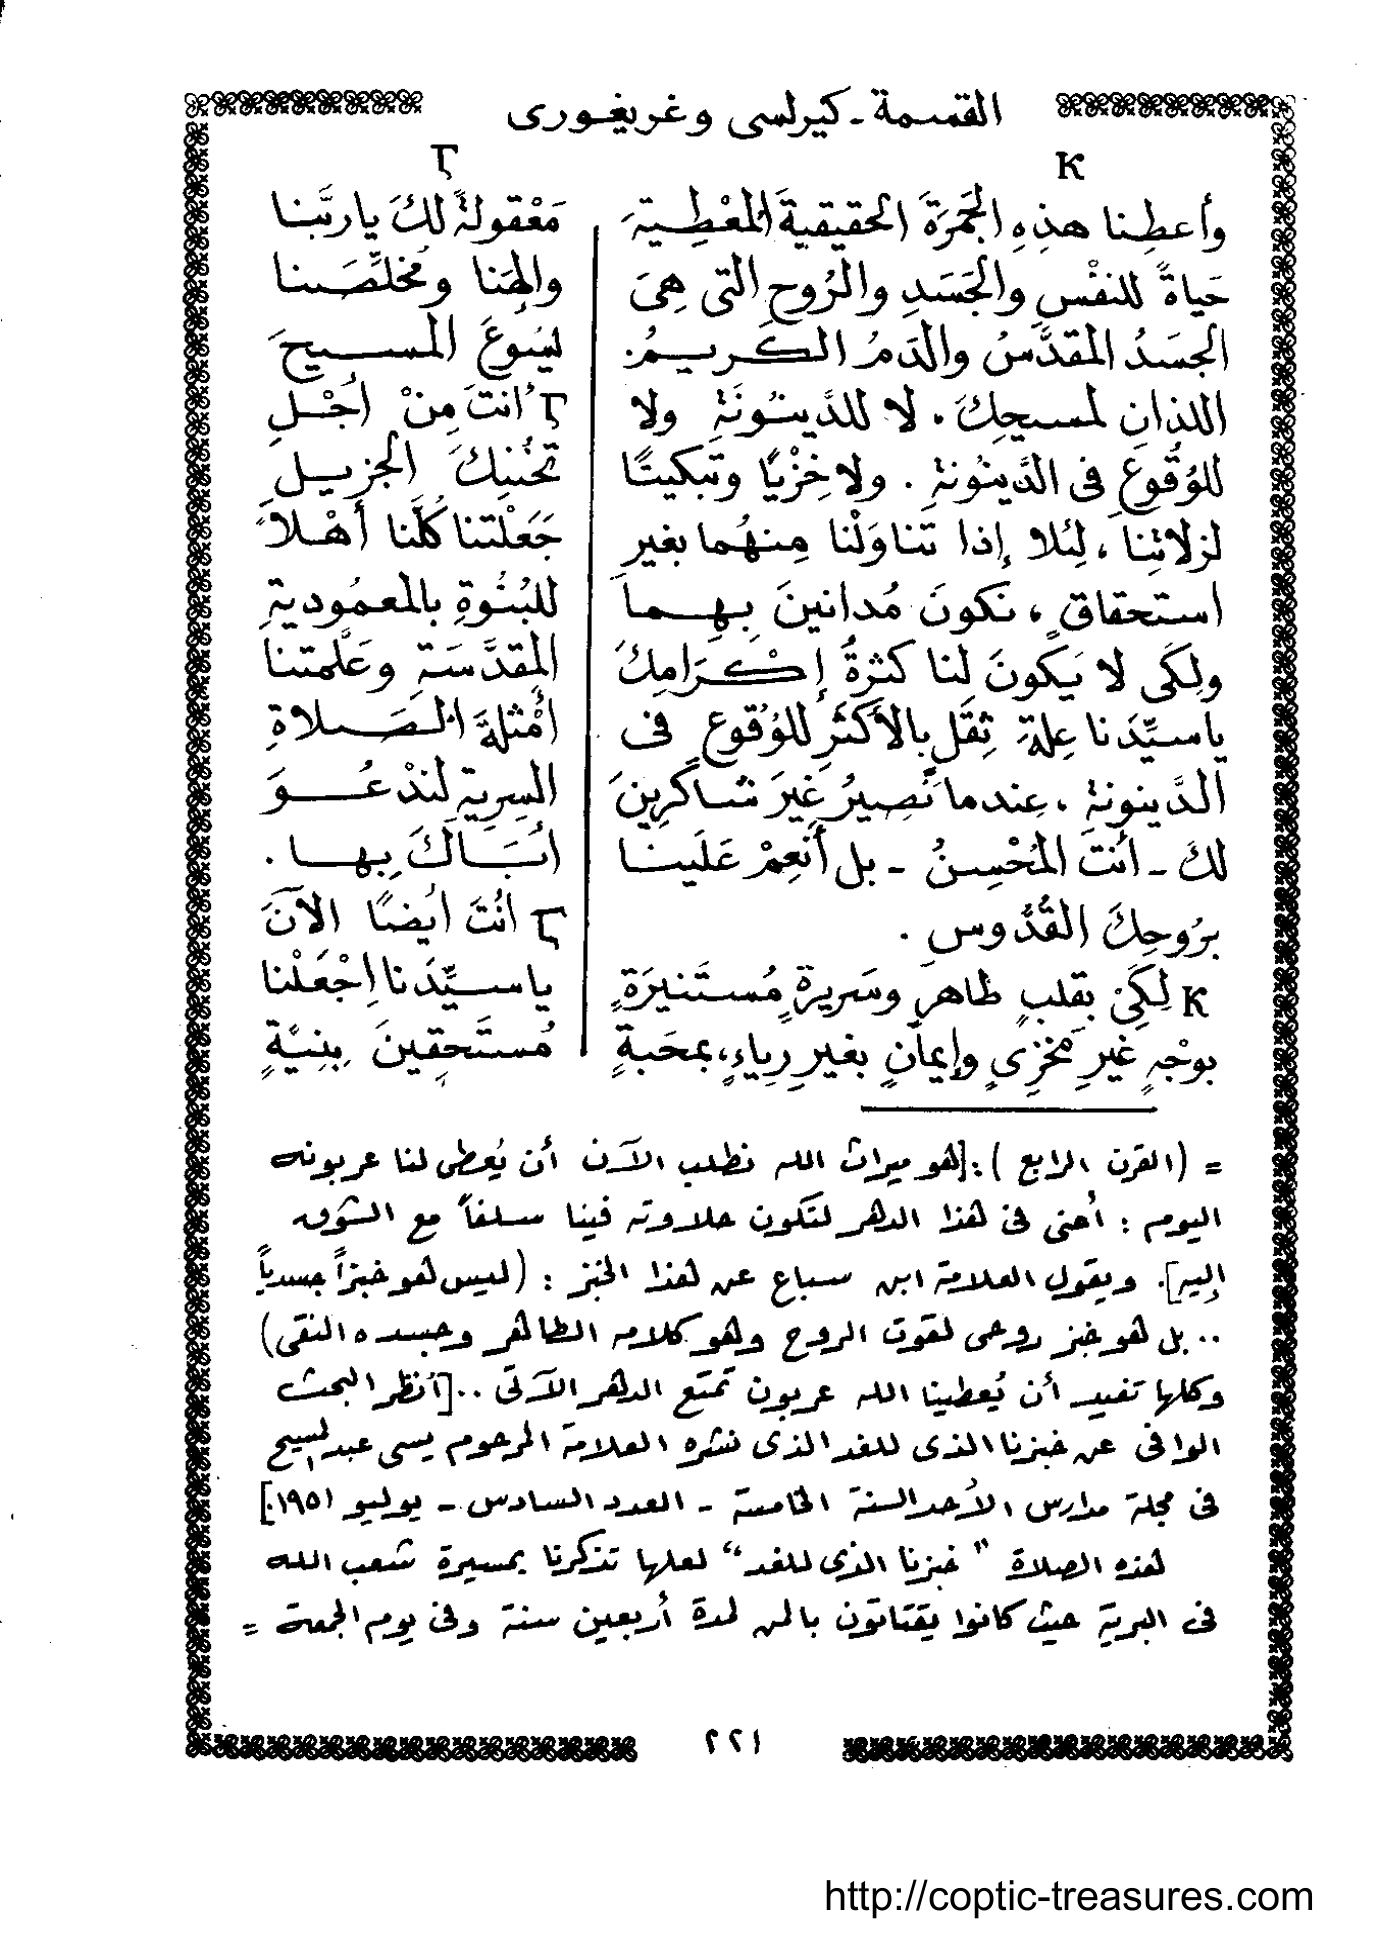 القسمة - كيرلسى وغريغورى
K
وأعطِنا هذِهِ الجَمرَةَ الحقيقيةَ المُعْطِيَةَ
حَياةً للنفْسِ والجَسَدِ والرُوحِ التى هِىَ
الجسَدُ المقدَّسُ والدَمُ الكَريمُ.
اللذانِ لمسيحِكَ . لا للدَّينُونَةِ ولا
للوُقُوعَ فى الدَّينُونةِ . ولا خِزْيًا وتبكيتًا
لزلاتِنا ، لِئلا إذا تناوَلْنا مِنهُما بغيرِ
استحقاقٍ ، نكونَ مُدانينَ بِهِما
ولِكَى لا يَكونَ لنا كثرةُ إكْرَامِكَ
ياسيِّدَنا عِلةِ ثِقَلٍ بالأكثَرِ للوُقُوعِ فى
الدَّينونةِ ، عِندما نَصِيرُ غيرَ شاكرِينَ
لكَ - أنتَ المُحْسِنُ - بل أنعِمْ عَلَينا
برُوحِكَ القُدُّوسِ .
K لِكَىْ بقلبٍ طاهرٍ وسَريرةٍ مُستَنيرَةٍ
بوْجْهٍ غَيرِ مَخزِىٍ وإيمانٍ بغيرِ رِياءٍ، بمحَبةٍ
Ⲅ
مَعْقولةً لكَ يا ربَّنا
وإلهَنا ومُخلِّصَنا
يَسُوعَ المسيحَ
Ⲅ أنتَ مِنْ أجْلِ
تحُننِكَ الجزيلِ
جَعَلْتنا كُلَّنا أهْلاً
للبُنُوةِ بالمعمُوديةِ
المقدَّسَةِ وعَلَّمتنا
أمْثِلةَ الصَلاةِ
السِريةِ لندْعُوَ
أبَاكَ بِها .
Ⲅ أنتَ أيضًا الآنَ
ياسيِّدَنا اِجْعَلْنا
مُستَحِقينَ بِنيَّةٍ
= (القرن الرابع ) : [هو ميراث الله نطلب الآن أن يُعطى لنا عربونه
اليوم : أعنى فى هذا الدهر لتكون حلاوته فينا سلفاً مع الشوق
إليه]. ويقول العلامة ابن سباع عن هذا الخبز : (ليس هو خبزاً جسدياً
.. بل هو خبز روحى لقوت الروح وهو كلامه الطاهر وجسده النقى)
وكلها تفيد أن يُعطينا الله عربون تمتع الدهر الآتى .. [أنظر البحث
الوافى عن خبزنا الذى للغد الذى نشره العلامة المرحوم يسى عبد المسيح
فى مجلة مدارس الأحد السنة الخامسة - العدد السادس - يوليو ١٩٥١]
هذه الصلاة " خبزنا الذى للغد" لعلها تذكرنا بمسيرة شعب الله
فى البرية حيث كانوا يقتاتون بالمن لمدة أربعين سنة وفى يوم الجمعة =
٢٢١
http://coptic-treasures.com